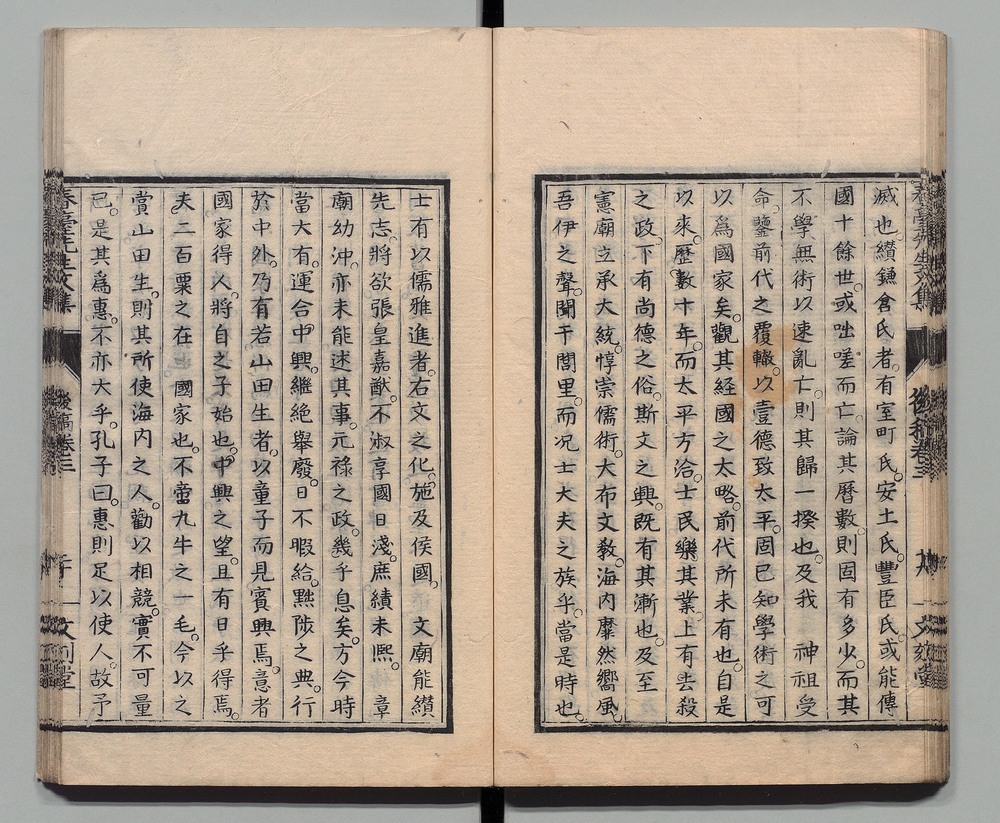 滅也。纘鎌倉氏者。有室町氏。安土氏。豐臣氏。或能傳
國十餘世。或咄嗟而亡。論其曆數。則固有多少。而其
不學無術以速亂亡。則其歸一揆也。及我 神祖受
命。鑒前代之覆轍。以壹德致太平。固已知學術之可
以爲國家矣。觀其經國之大略。前代所未有也。自是
以來。歷數十年。而太平方洽。士民樂其業。上有去殺
之政。下有尚德之俗。斯文之興。既有其漸也。及至
憲廟立承大統。惇崇儒術。大布文教。海内靡然嚮風。
吾伊之聲。聞于閭里。而況士大夫之族乎。當是時也。
士有以儒雅進者。右文之化。施及侯國。 文廟能纘
先志。將欲張皇嘉猷。不淑享國日淺。庶績未熈。 章
廟幼沖。亦未能述其事。元祿之政。幾乎息矣。方今時
當大有。運合中興。繼絶舉廢。日不暇給。黜陟之典。行
於中外。乃有若山田生者。以童子而見賓興焉。意者
國家得人。將自之子始也。中興之望。且有日乎得焉。
夫二百粟之在 國家也。不啻九牛之一毛。今以之
賞山田生。則其所使海内之人。勸以相競。實不可量
已。是其爲惠。不亦大乎。孔子曰。惠則足以使人。故予
後稿卷三